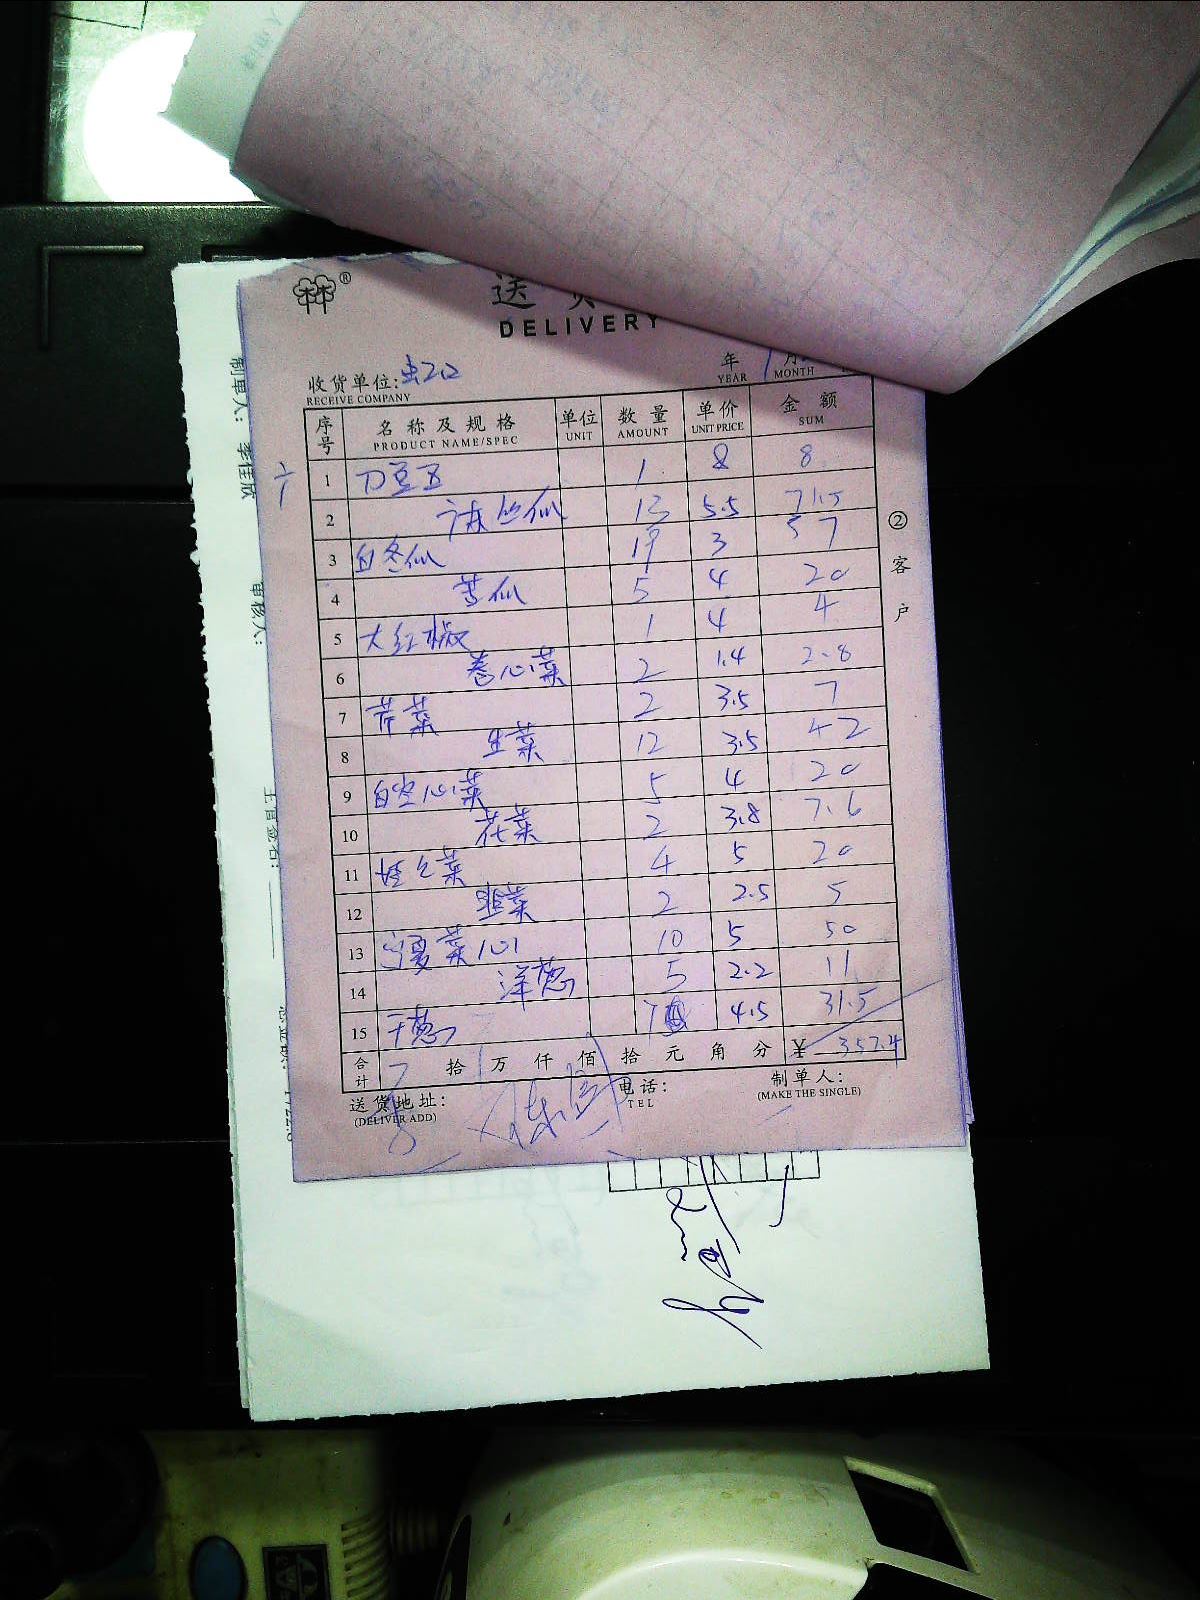 送
DELIVERY
收货单位:
RECEIVE COMPANY
年 1月
YEAR MONTH
序号 名称及规格 单位 数量 单价 金额
PRODUCT NAME/SPEC UNIT AMOUNT UNIT PRICE SUM
1 刀豆 1 8 8
2 瓜 13 5.5 71.5
3 白冬瓜 19 3 57
4 苦瓜 5 4 20
5 大红椒 1 4 4
6 卷心菜 2 1.4 2.8
7 芹菜 2 3.5 7
8 生菜 12 3.5 42
9 白空心菜 5 4 20
10 花菜 2 3.8 7.6
11 娃娃菜 4 5 20
12 韭菜 2 2.5 5
13 宁夏菜心 10 5 50
14 洋葱 5 2.2 11
15 干葱 7 4.5 31.5
合计 拾 万 仟 佰 拾 元 角 分 ¥ 357.4
送货地址: 电话: 制单人:
(DELIVER ADD) TEL (MAKE THE SINGLE)
②客户
制单人: 李佳欣
审核人: